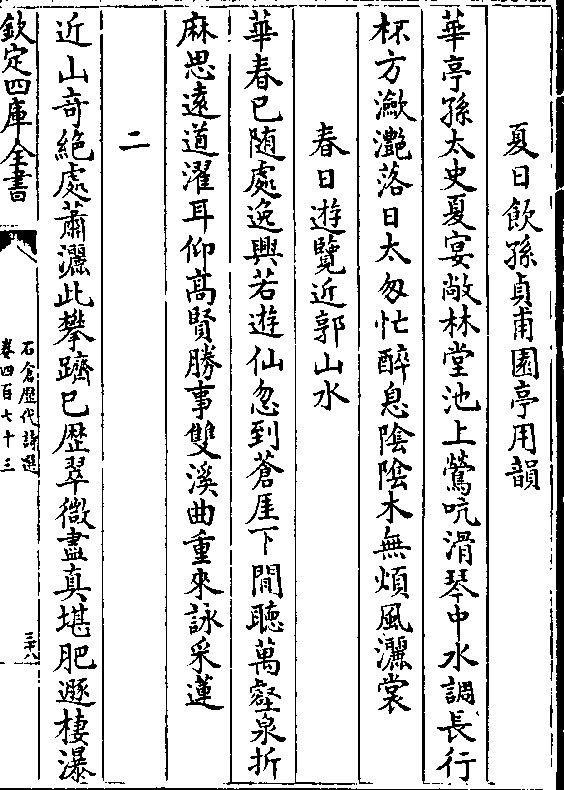 夏日飲孫貞甫園亭用韻
華亭孫太史夏宴敞林堂池上鶯吭滑琴中水調長行
杯方瀲灔落日太匆忙醉息陰陰木無煩風灑裳
春日遊覽近郭山水
華春已随處逸興若遊仙忽到蒼厓下閒聽萬壑泉折
麻思遠道濯耳仰高賢勝事雙溪曲重來詠采蓮
二
近山奇絶處蕭灑此攀躋已歴翠微盡真堪肥遯棲瀑
欽定四庫全書
石倉歴代詩選
卷四百七十三
三十八